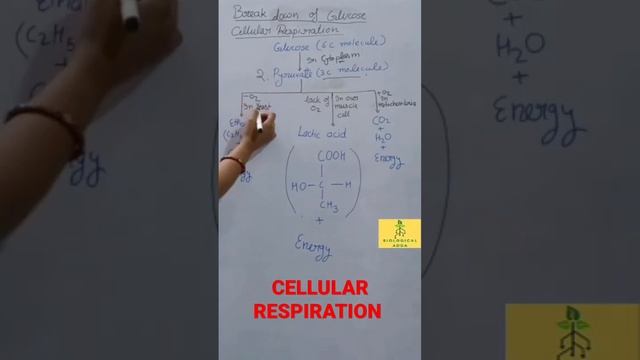 Break down of Glucose
Cellular Respiration
Glucose (6C molecule)
In Cytoplasm
2. Pyruvate (3C molecule)
-O2
In Yeast
lack of O2
In our muscle cell
+O2
In
Lactic acid
CO2
+
H2O
+
Energy
COOH
HO-C-H
CH3
+
Energy
BIOLOGICAL
ADDA
CELLULAR
RESPIRATION
(C2H5
H2O
+
Energy